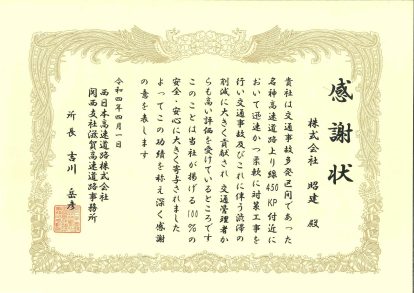 感謝状
株式会社 昭建 殿
貴社は交通事故多発区間であった
名神高速道路上り線450KP付近に
おいて迅速かつ柔軟に対策工事を
行い交通事故及びこれに伴う渋滞の
削減に大きく貢献され交通管理者か
らも高い評価を受けているところです
このことは当社が掲げる100%の
安全・安心に大きく寄与されました
よってこの功績を称え深く感謝
の意を表します
令和四年四月一日
西日本高速道路株式会社
関西支社滋賀高速道路事務所
所長 吉川 岳彦